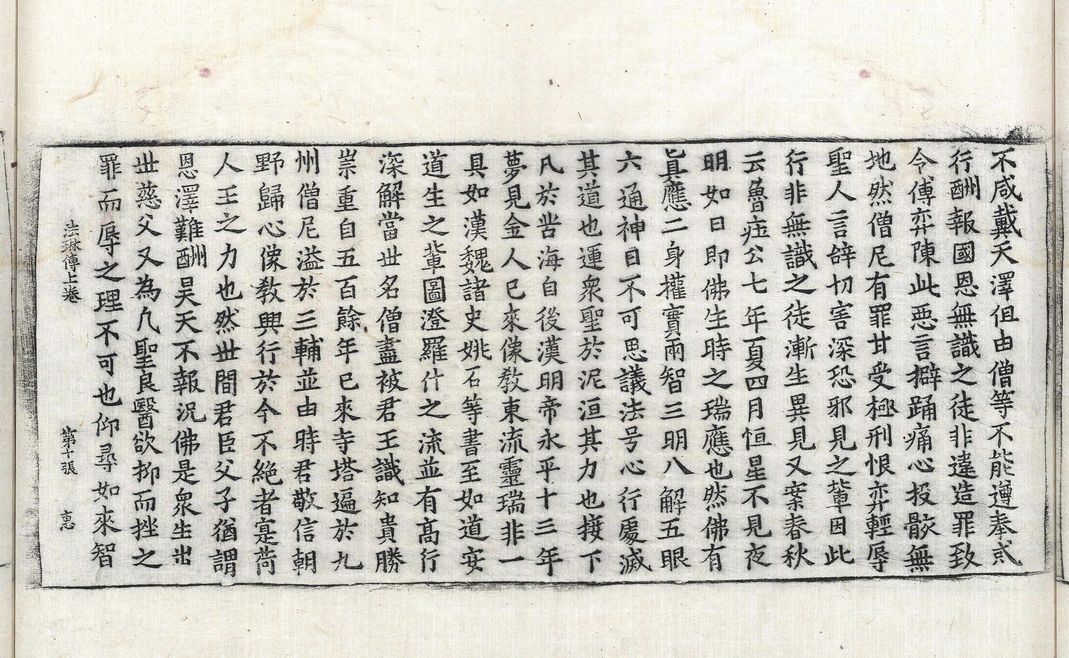 不咸戴天澤但由僧等不能遵奉貳
行酬報國恩無識之徒非違造罪致
令傅弈陳此惡言擗踊痛心投骸無
地然僧尼有罪甘受極刑恨弈輕辱
聖人言辝切害深恐邪見之輩因此
行非無識之徒漸生異見又案春秋
云魯莊公七年夏四月恒星不見夜
明如日即佛生時之瑞應也然佛有
眞應二身權實兩智三明八解五眼
六通神日不可思議法号心行處滅
其道也運衆聖於泥洹其力也接下
凡於苦海自後漢明帝永平十三年
夢見金人已來像教東流靈瑞非一
具如漢魏諸史姚石等書至如道安
道生之輩圖澄羅什之流並有高行
深解當世名僧盡被君王識知貴勝
崇重自五百餘年已來寺塔遍於九
州僧尼溢於三輔並由時君敬信朝
野歸心像教興行於今不絕者寔荷
人王之力也然世間君臣父子猶謂
恩澤難酬昊天不報況佛是衆生出
世慈父又為凡聖良醫欲抑而挫之
罪而辱之理不可也仰尋如來智
法琳傳上卷　第十張　惠